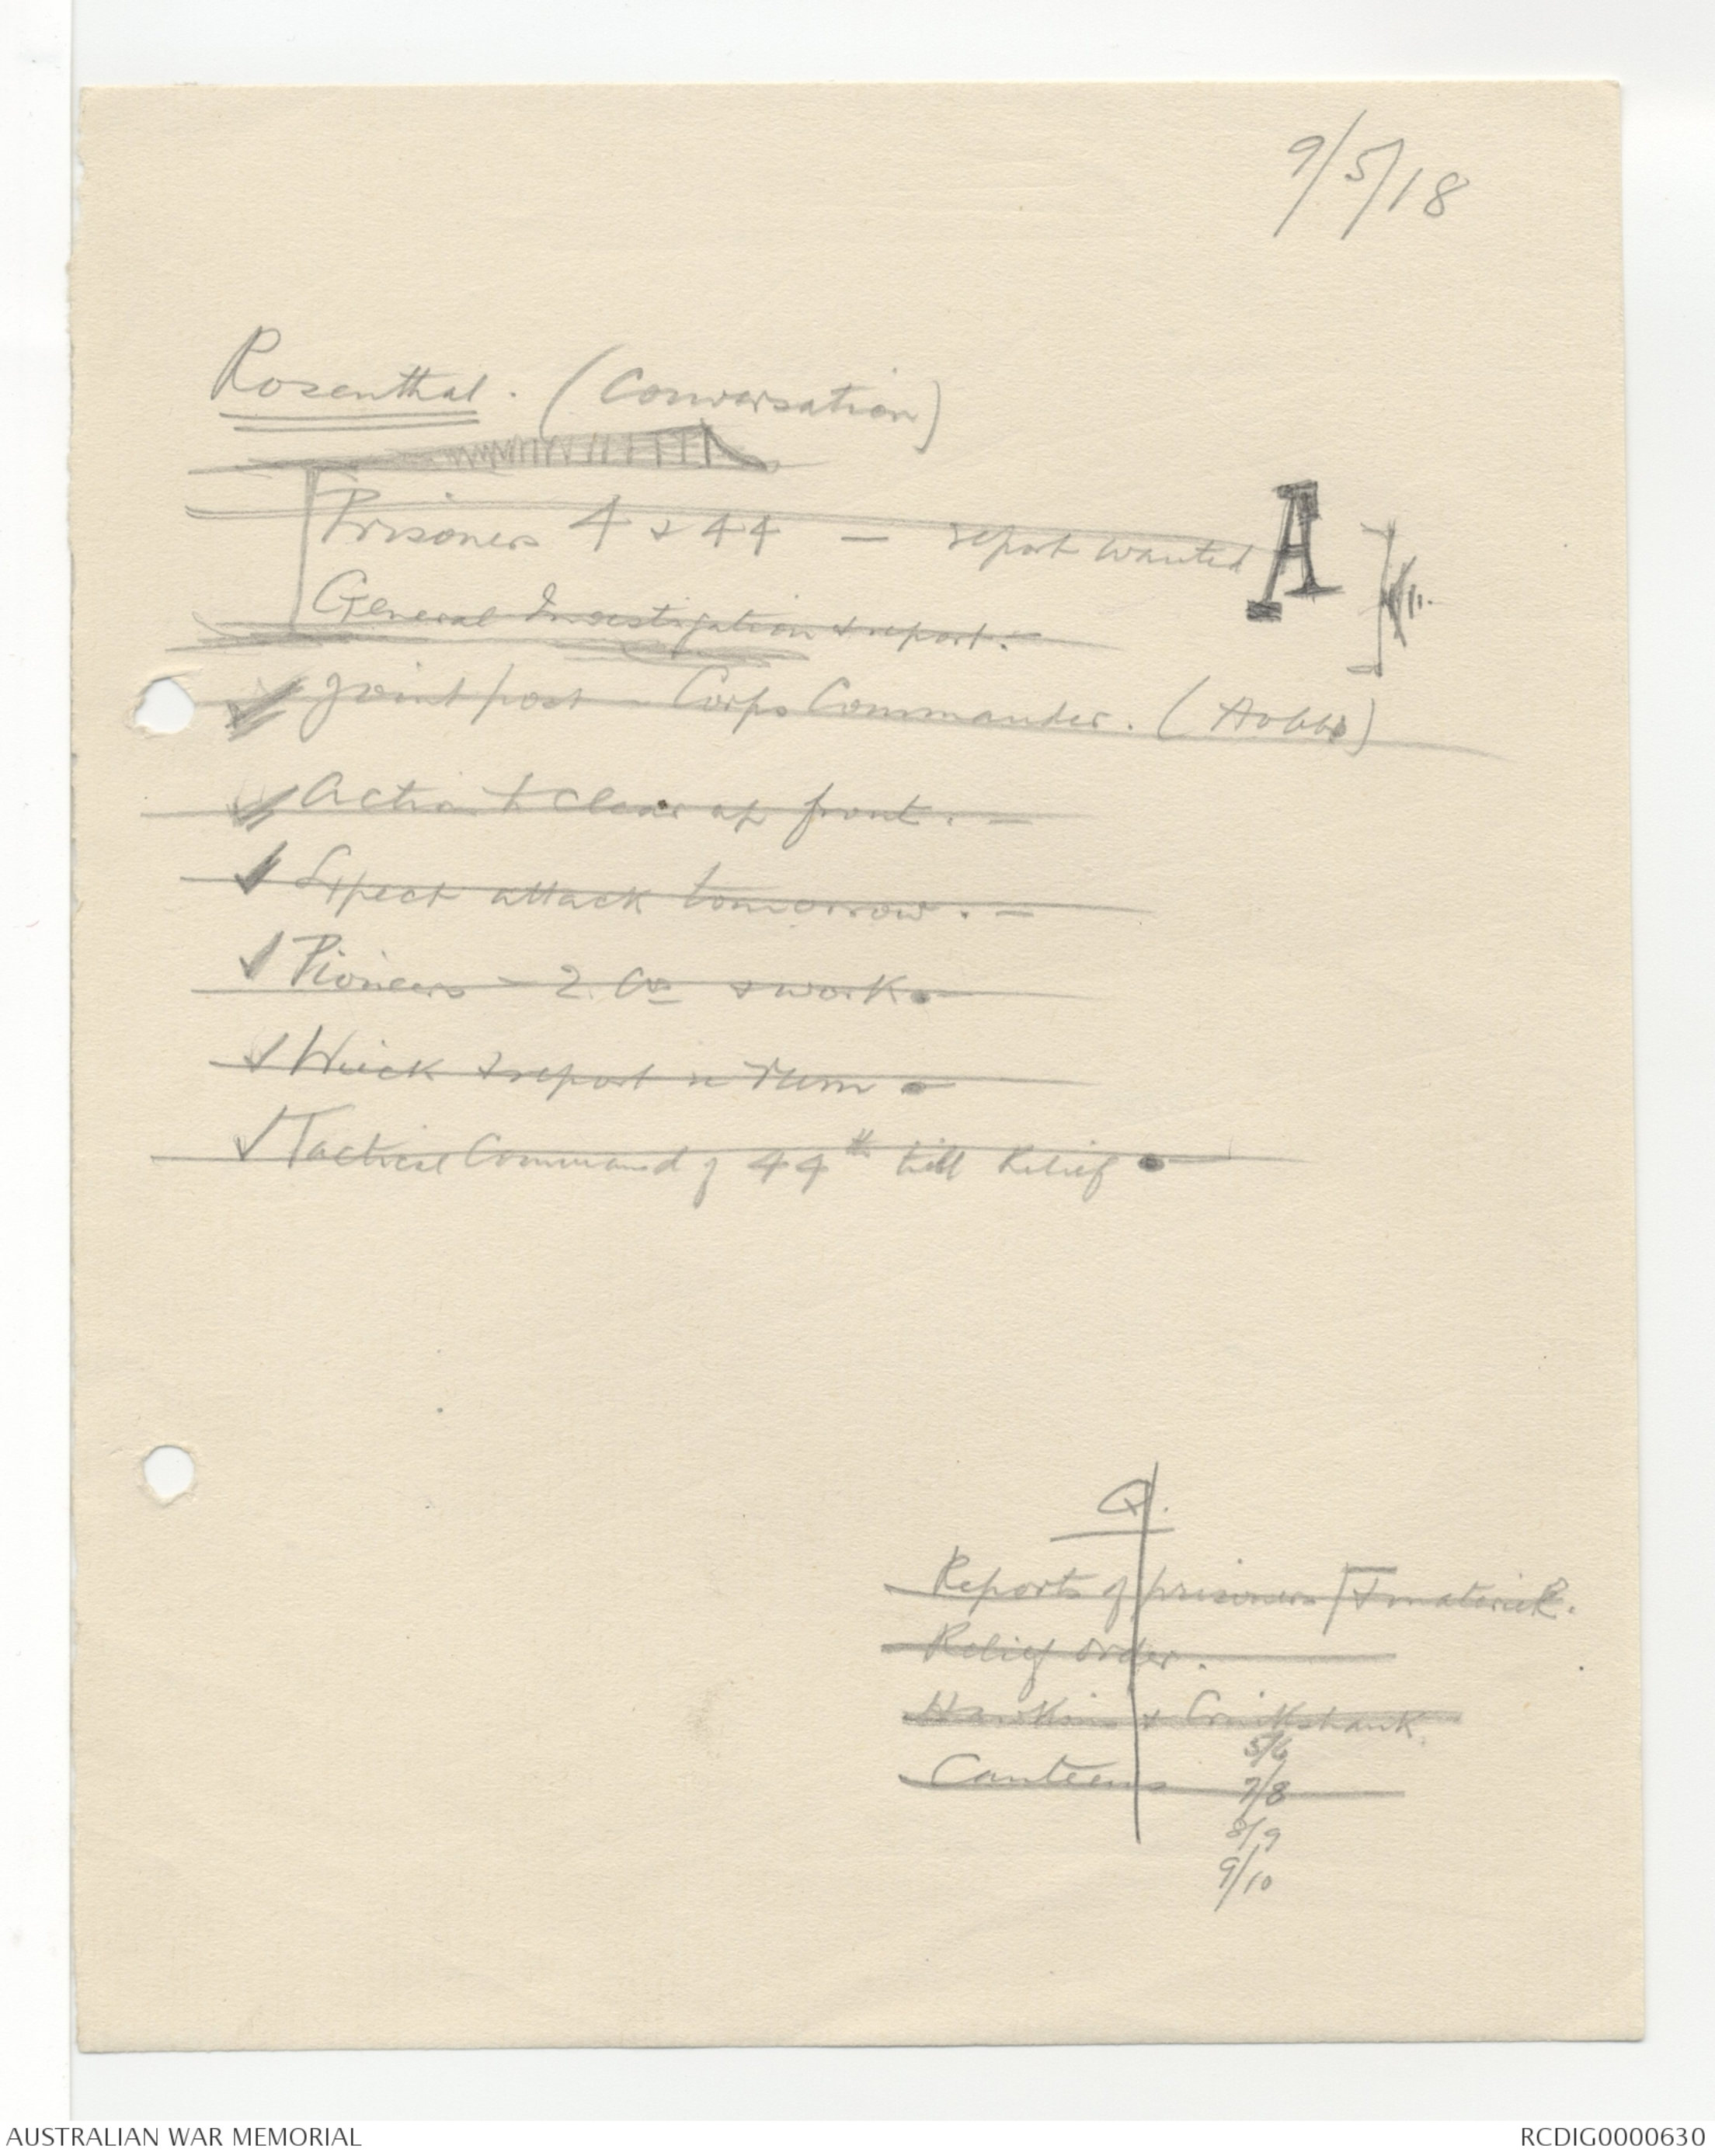 9/5/18
Rosenthal. (Conversation)
Prisoners 4 & 44 — report wanted
A
General Investigation & report. —
✓ Joint post — Corps Commander. (Hobbs)
✓ Action to clear up front. —
✓ Expect attack tomorrow. —
✓ Pioneers — 2 Cos & work
✓ Wieck & report re rum
✓ Tactical Command of 44th till Relief
Q.
Reports of prisoners & materiel.
Relief order.
Hawkins & Cruikshank
5/6
Canteens
7/8
8/9
9/10
AUSTRALIAN WAR MEMORIAL
RCDIG0000630